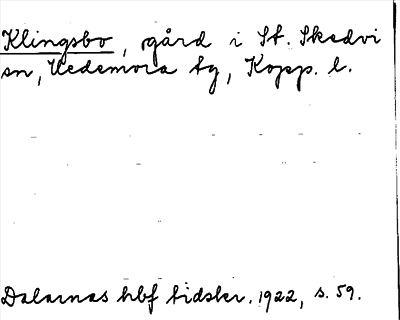 Klingsbo, gård i St. Skedvi
sn, Vedemora tg, Kopp. l.
Dalarnas hbf tidskr. 1922, s. 59.